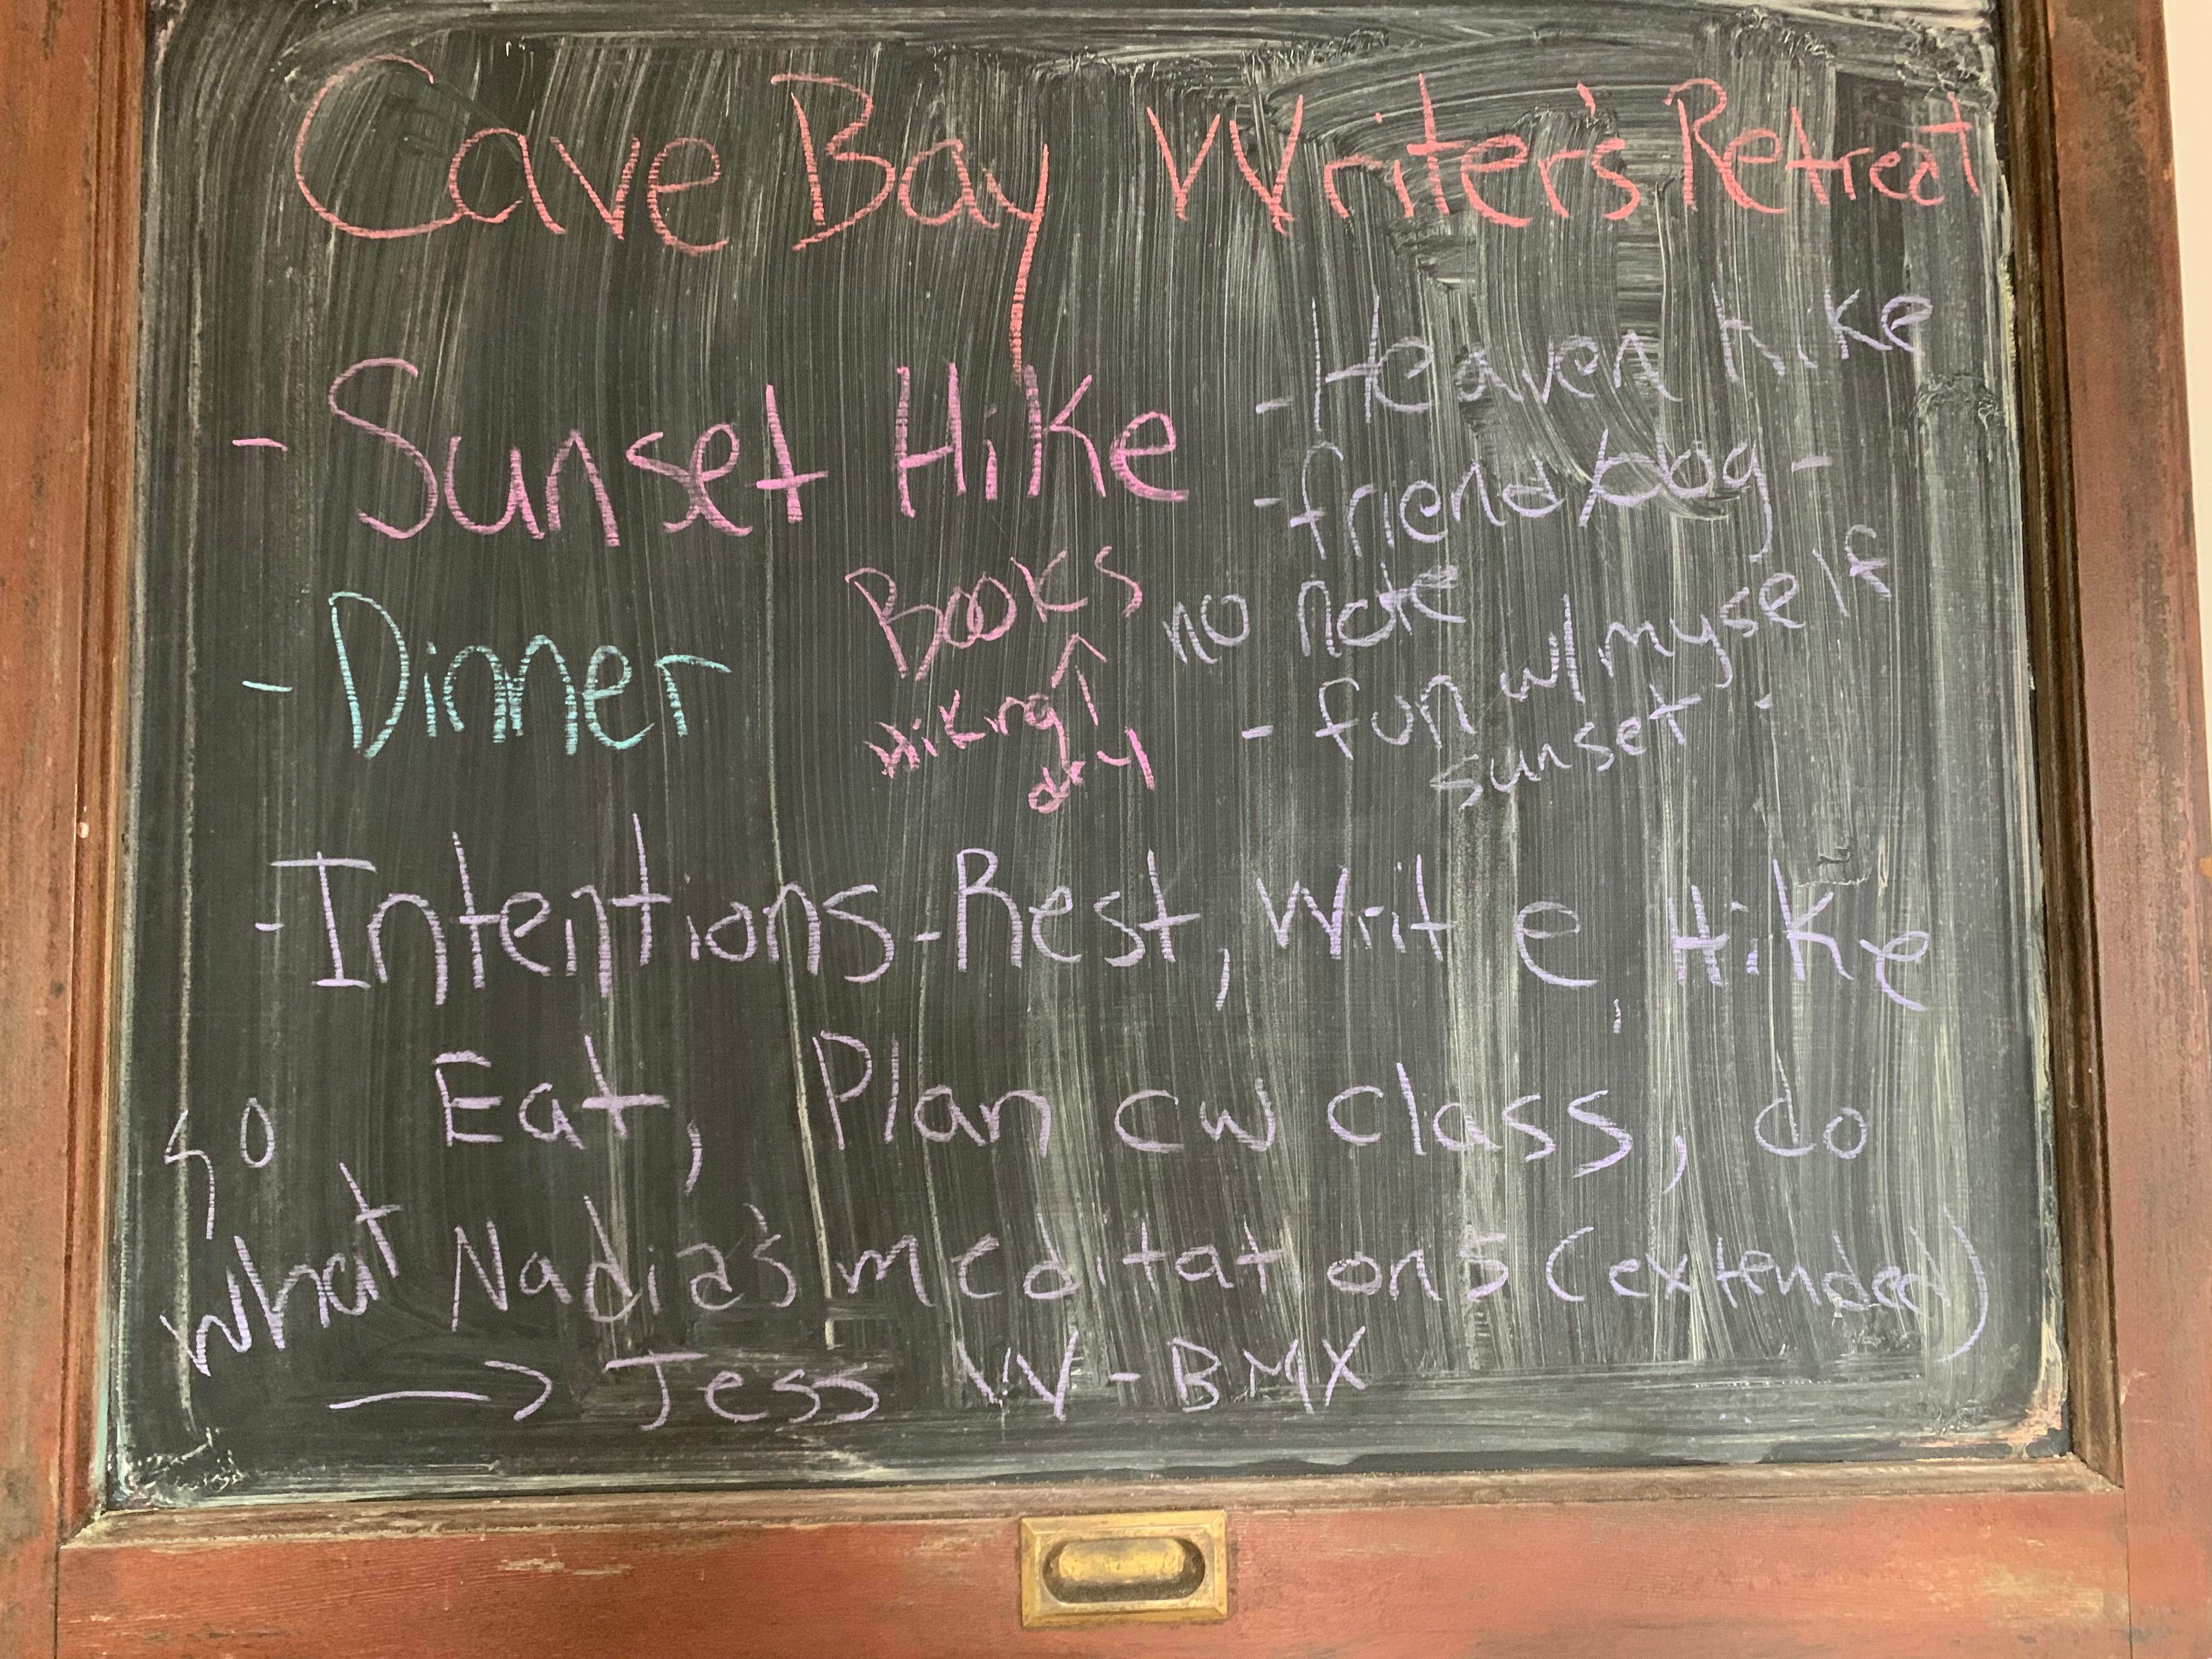 Cave Bay Writer's Retreat
- Sunset Hike
- Heaven hike
- friend/dog -
no note
- fun w/ myself
sunset -
- Dinner
Books
Hiking
dry
- Intentions - Rest, Write, Hike
Eat, Plan cw class, do
Nadia's meditations (extended)
→ Jess W - BMX
so
what